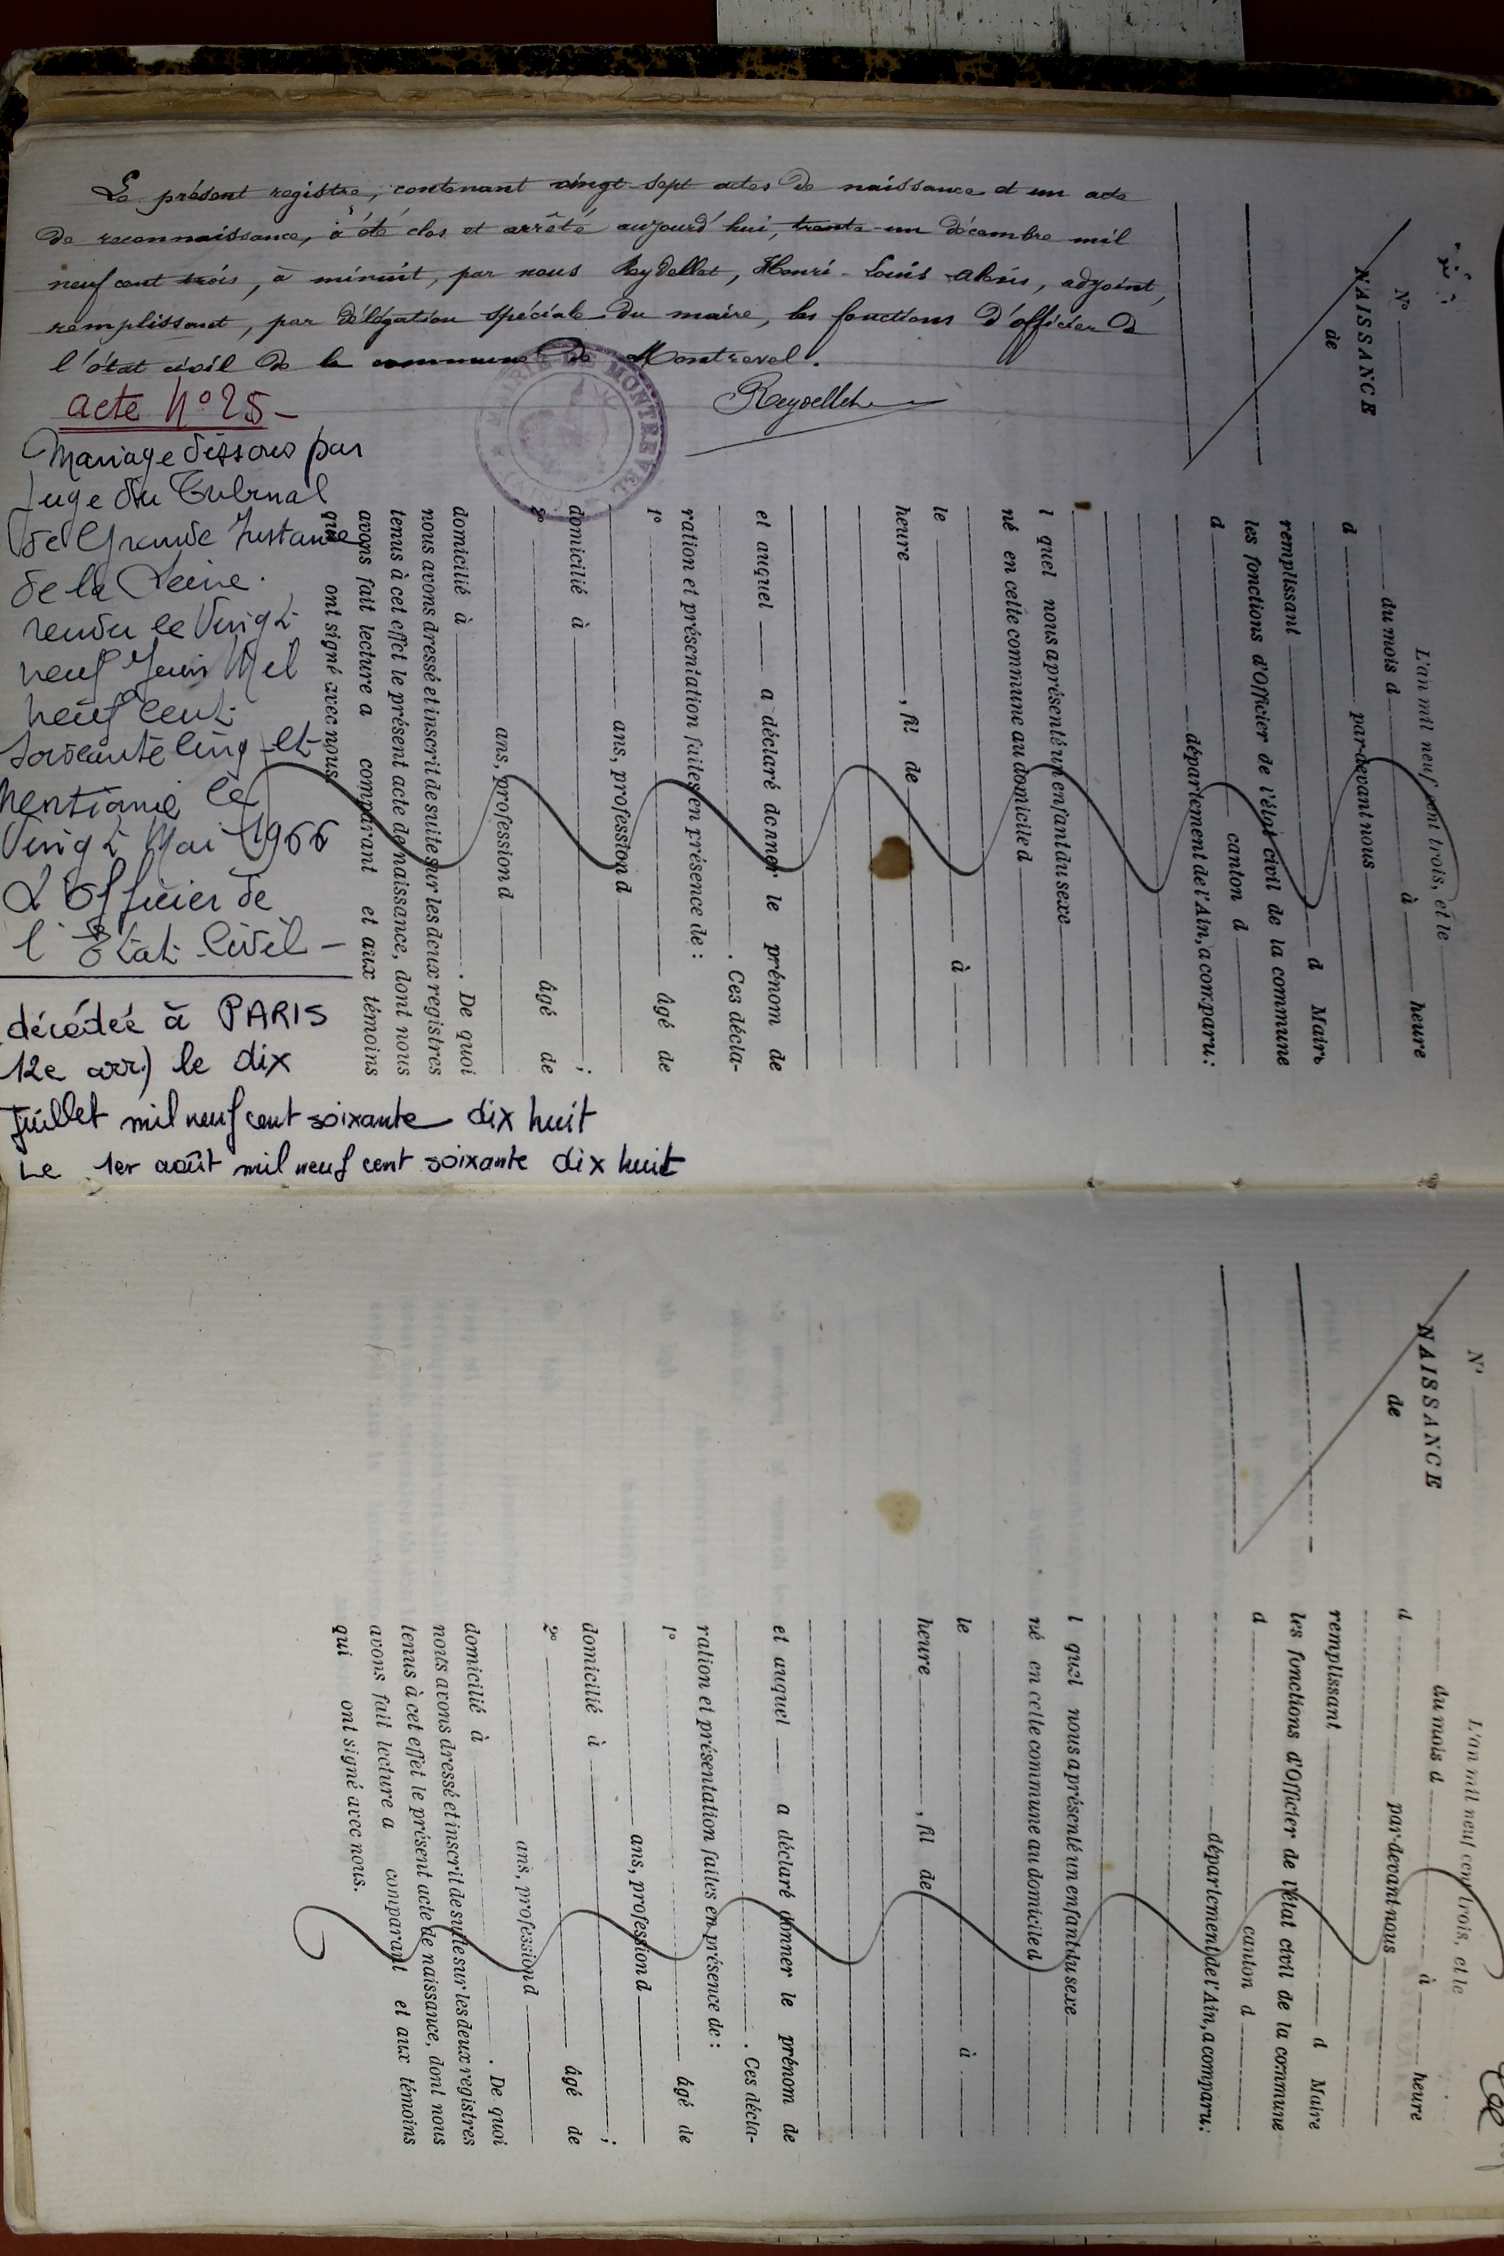 Le présent registre, contenant vingt-sept actes de naissance et un acte
de reconnaissance, a été clos et arrêté aujourd'hui, trente-un décembre mil
neuf cent trois, à minuit, par nous Reydellet, Henri-Louis Alexis, adjoint,
remplissant, par délégation spéciale du maire, les fonctions d'officier de
l'état civil de la commune de Montrevel.
Reydellet
MAIRIE DE MONTREVEL
(AIN)
acte N° 25
Mariage dissous par
Juge du Tribunal
de Grande Instance
de la Seine.
rendu le Vingt
neuf Juin Mil
neuf cent
soixante cinq et
mentionné le
Vingt Mai 1966
L'Officier de
l'Etat-Civil
décédée à PARIS
12e arr) le dix
Juillet mil neuf cent soixante dix huit
Le 1er août mil neuf cent soixante dix huit
N°
NAISSANCE
de
L'an mil neuf cent trois, et le
du mois d à heure
d par-devant nous
d Maire
remplissant
les fonctions d'Officier de l'état civil de la commune
d canton d
département de l'Ain, a comparu:
l quel nous a présenté un enfant du sexe
né en cette commune au domicile d
le à
heure , fil de
et auquel a déclaré donner le prénom de
. Ces décla-
ration et présentation faites en présence de :
1° âgé de
ans, profession d
domicilié à ;
2° âgé de
ans, profession d
domicilié à . De quoi
nous avons dressé et inscrit de suite sur les deux registres
tenus à cet effet le présent acte de naissance, dont nous
avons fait lecture a comparant et aux témoins
qui ont signé avec nous.
N°
NAISSANCE
de
L'an mil neuf cent trois, et le
du mois d à heure
d par-devant nous
d Maire
remplissant
les fonctions d'Officier de l'état civil de la commune
d canton d
département de l'Ain, a comparu:
l quel nous a présenté un enfant du sexe
né en cette commune au domicile d
le à
heure , fil de
et auquel a déclaré donner le prénom de
. Ces décla-
ration et présentation faites en présence de :
1° âgé de
ans, profession d
domicilié à ;
2° âgé de
ans, profession d
domicilié à . De quoi
nous avons dressé et inscrit de suite sur les deux registres
tenus à cet effet le présent acte de naissance, dont nous
avons fait lecture a comparant et aux témoins
qui ont signé avec nous.